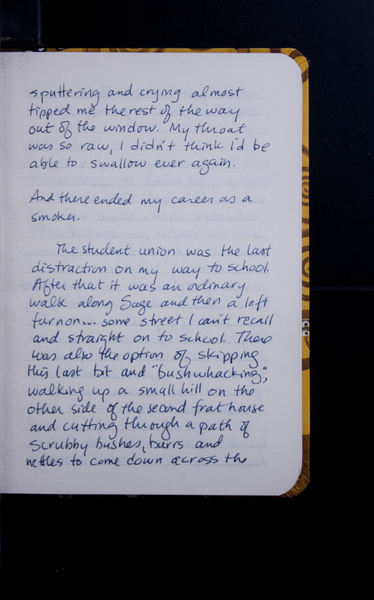 sputtering and crying almost
tipped me the rest of the way
out of the window. My throat
was so raw, I didn't think i'd be
able to swallow ever again.
And there ended my career as a
smoker.
The student union was the last
distraction on my way to school.
After that it was an ordinary
walk along Sage and then a left
turn on... some street I can't recall
and straight on to school. There
was also the option of skipping
this last bit and "bushwhacking",
walking up a small hill on the
other side of the second frat house
and cutting through a path of
scrubby bushes, burrs and
nettles to come down across the